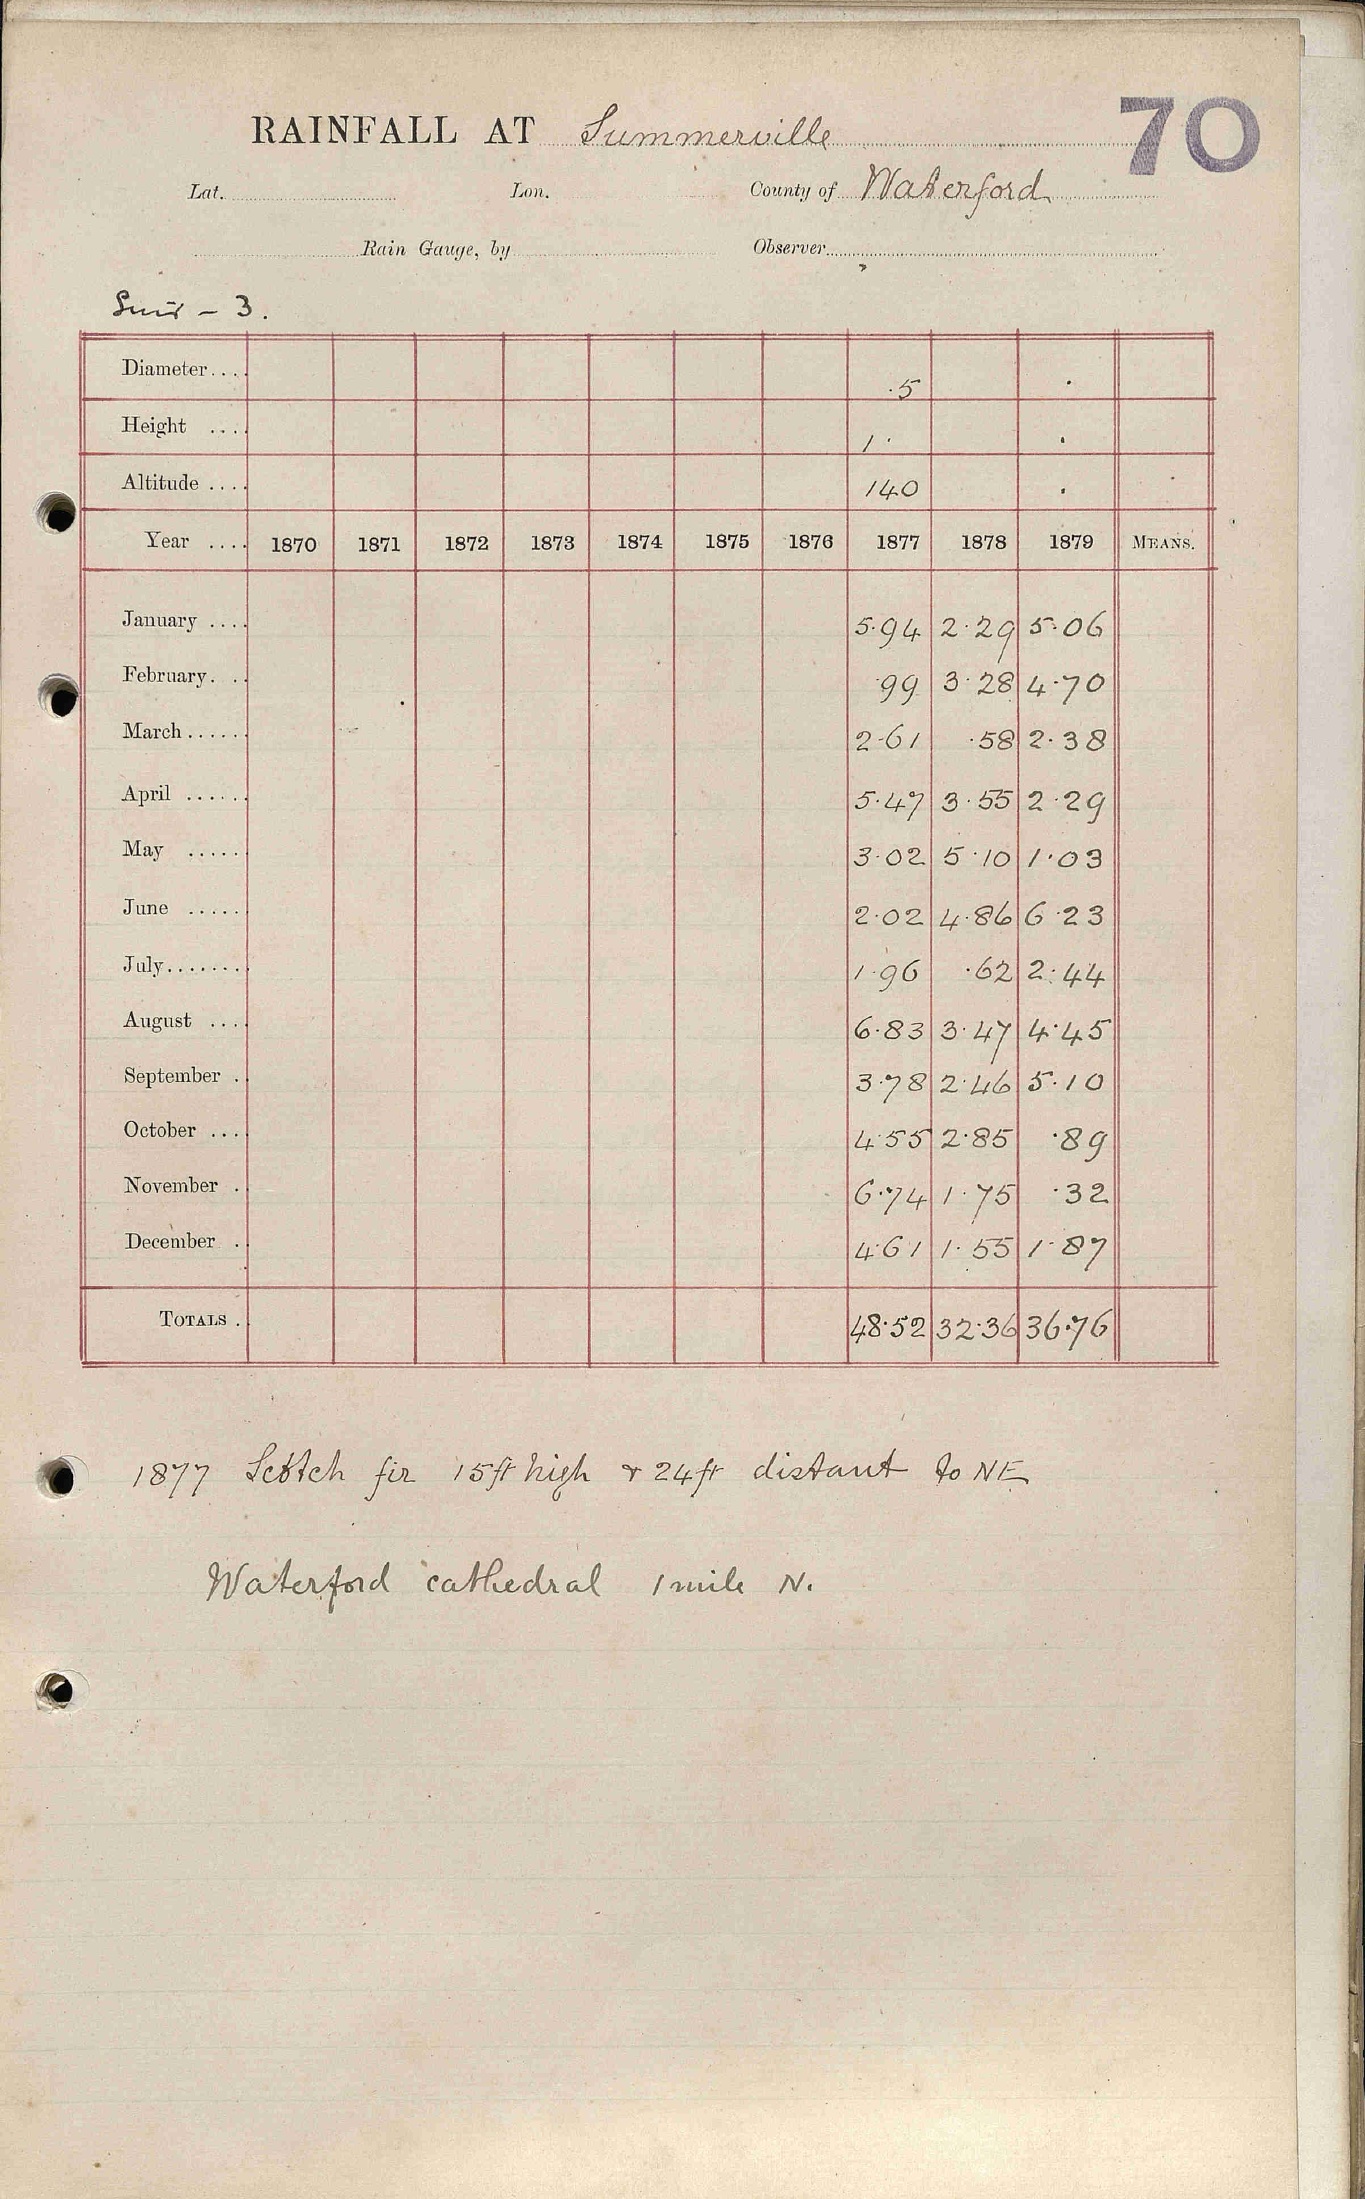 70
RAINFALL AT Summerville
Lat. Lon. County of Waterford
Rain Gauge, by Observer
Suir - 3.
Diameter.... .5 .
Height .... 1. .
Altitude .... 140 .
Year .... 1870 1871 1872 1873 1874 1875 1876 1877 1878 1879 MEANS.
January .... 5.94 2.29 5.06
February. .. .99 3.28 4.70
March...... 2.61 .58 2.38
April ...... 5.47 3.55 2.29
May ..... 3.02 5.10 1.03
June ..... 2.02 4.86 6.23
July........ 1.96 .62 2.44
August .... 6.83 3.47 4.45
September . 3.78 2.46 5.10
October .... 4.55 2.85 .89
November . 6.74 1.75 .32
December . 4.61 1.55 1.87
TOTALS . 48.52 32.36 36.76
1877 Scotch fir 15ft high & 24ft distant to NE
Waterford cathedral 1 mile N.